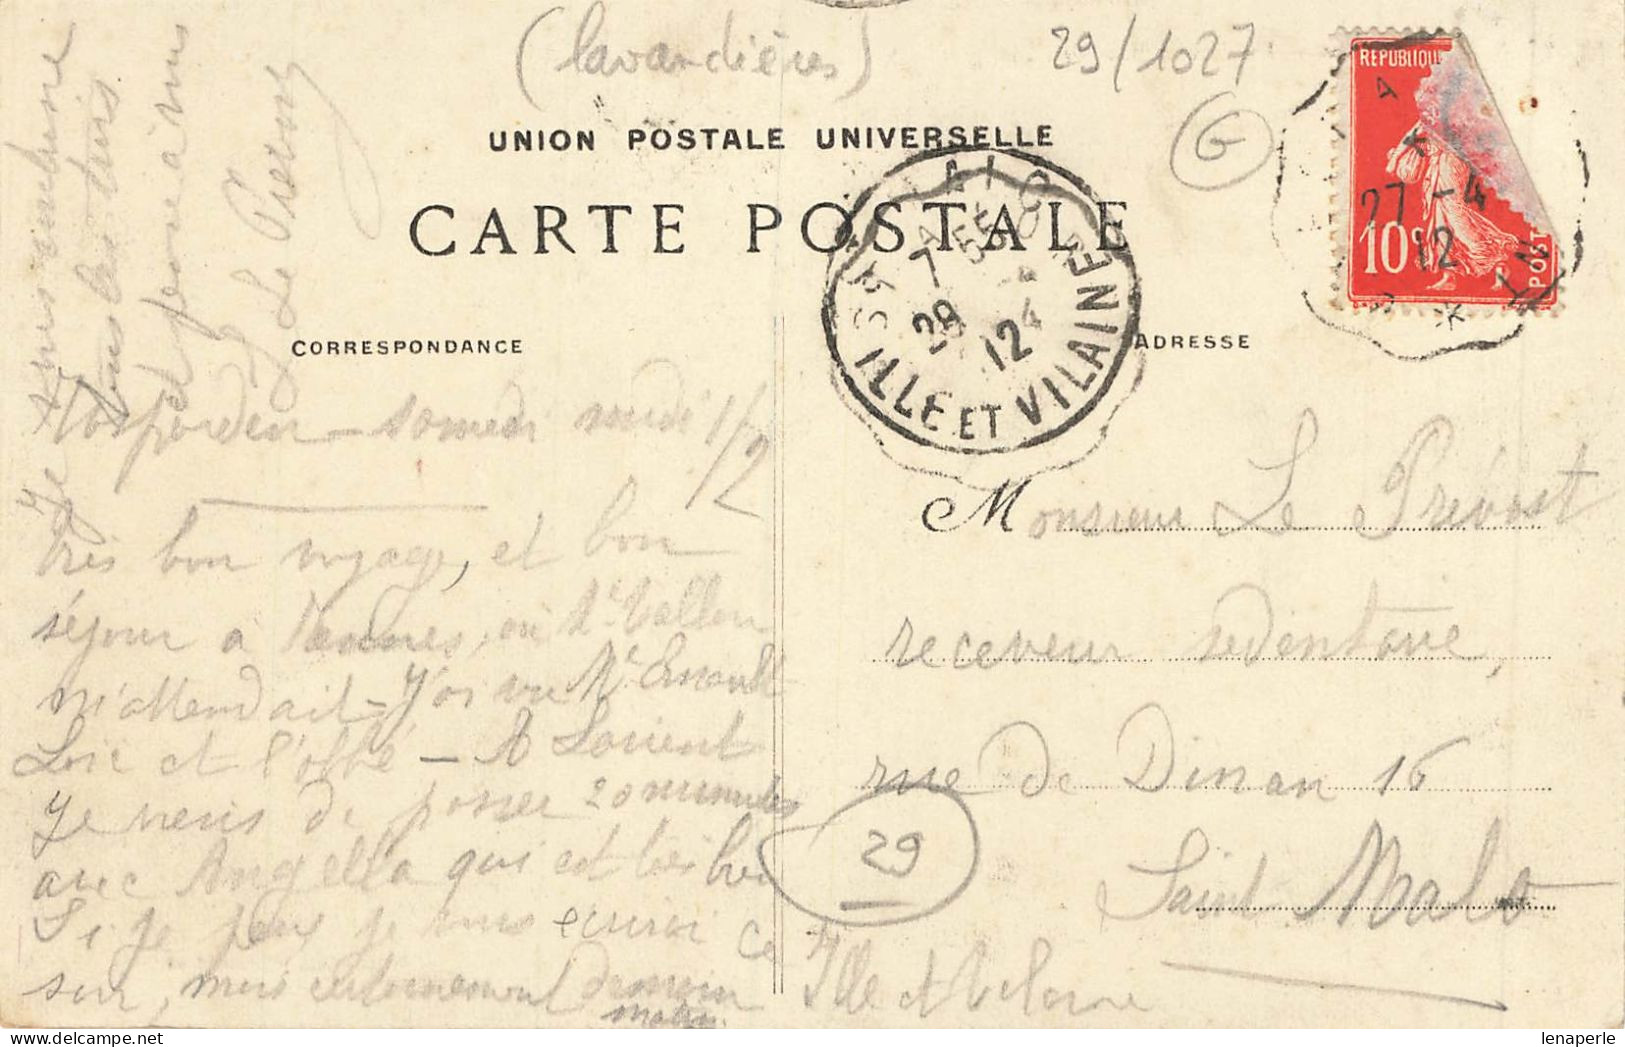 (lavandières)
29/1027
G
UNION POSTALE UNIVERSELLE
CARTE POSTALE
REPUBLIQUE
10c
POST
27-4
12
ILLE ET VILAINE
7
29 -4
12
CORRESPONDANCE
ADRESSE
Rosporden - samedi midi 1/2
Je
très bon voyage, et bon
séjour à Vannes, où
m'attendait - J'ai vu Mr
et l'abbé - A Lorient
Je viens de passer 20 minutes
avec Angella qui est très bien
Si je peux je vous écrirai ce
soir, mais certainement demain
matin.
Je vous embrasse
tous les trois
et pense à vous
Monsieur Le Prévost
receveur sedentaire,
rue de Dinan 16
Saint Malo
Ille et Vilaine
29
lenaperle